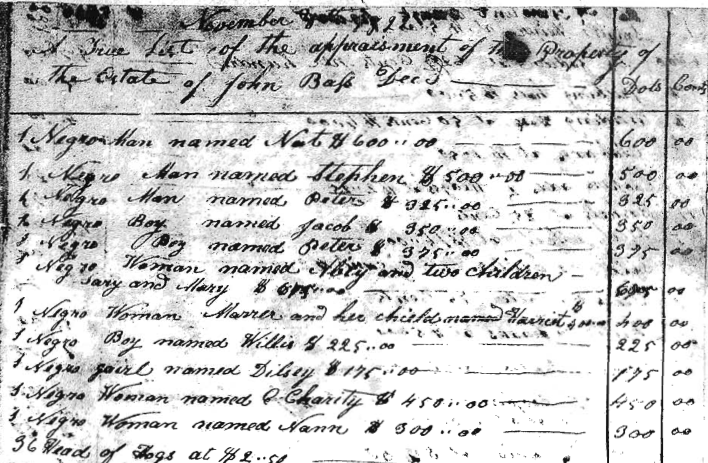 November
A True List of the appraisment of the Property of
the Estate of John Bass Decd Dols Cents
1 Negro Man named Nat $ 600..00 600 00
1 Negro Man named Stephen $ 500..00 500 00
1 Negro Man named Peter $ 325..00 325 00
1 Negro Boy named Jacob $ 350..00 350 00
1 Negro Boy named Peter $ 375..00 375 00
1 Negro Woman named and two children
and Mary $ 00 00
1 Negro Woman and her child named Harriet $ 400..00 400 00
1 Negro Boy named Willis $ 225..00 225 00
1 Negro gairl named Dilsey $ 175..00 175 00
1 Negro Woman named Charity $ 450..00 450 00
1 Negro Woman named Nann $ 300..00 300 00
36 Head of Hogs at $2..50